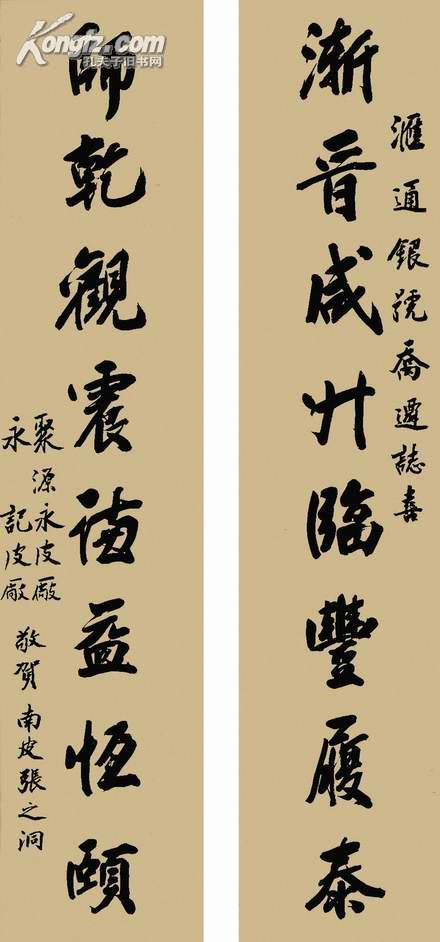 滙通銀號喬遷誌喜
漸晉咸升臨豐履泰
師乾觀震謙益恆頤
聚源永皮廠
永記皮廠
敬賀 南皮張之洞
Kongfz.com
孔夫子旧书网